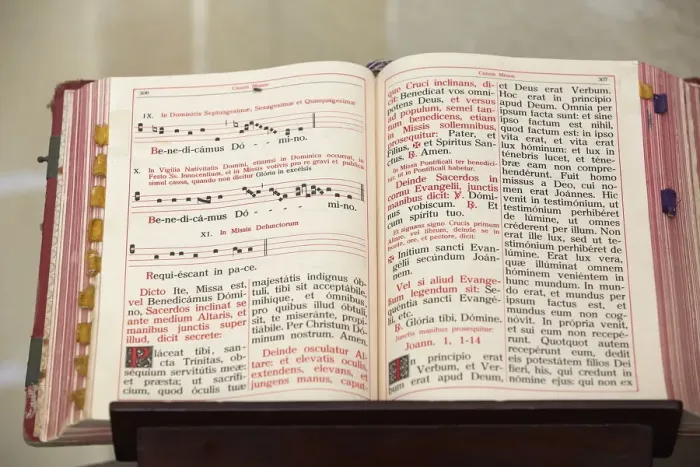 306
Canon Missæ
IX. In Dominicis Septuagesimæ, Sexagesimæ et Quinquagesimæ
Be-ne-di-cámus Dó - - - mi-no.
X. In Vigilia Nativitatis Domini, etiamsi in Dominica occurrat, in
Festo Ss. Innocentium, et in Missis votivis pro re gravi et publica
simul causa, quando non dicitur Glória in excélsis
Be-ne-di-cá-mus Dó - - - mi-no.
XI. In Missis Defunctorum
Requi-éscant in pa-ce.
Dicto Ite, Missa est,
vel Benedicámus Dómi-
no, Sacerdos inclinat se
ante medium Altaris, et
manibus junctis super
illud, dicit secrete:
Pláceat tibi, san-
cta Trinitas, ob-
séquium servitútis meæ:
et præsta; ut sacrifí-
cium, quod óculis tuæ
majestátis indígnus ób-
tuli, tibi sit acceptábile,
mihíque, et ómnibus,
pro quibus illud óbtuli,
sit, te miseránte, propi-
tiábile. Per Christum Dó-
minum nostrum. Amen.
Deinde osculatur Al-
tare: et elevatis oculis,
extendens, elevans, et
jungens manus, caput-
Canon Missæ
307
quo Cruci inclinans, di-
cit: Benedícat vos omní-
potens Deus, et versus
ad populum, semel tan-
tum benedicens, etiam
in Missis sollemnibus,
prosequitur: Pater, et
Fílius, ✠ et Spíritus San-
ctus. ℟. Amen.
In Missa Pontificali ter benedici-
tur, ut in Pontificali habetur.
Deinde Sacerdos in
cornu Evangelii, junctis
manibus dicit: ℣. Dómi-
nus vobíscum. ℟. Et
cum spíritu tuo.
Et signans signo Crucis primum
Altare, vel librum, deinde se in
fronte, ore, et pectore, dicit:
✠ Inítium sancti Evan-
gélii secúndum Joán-
nem.
Vel si aliud Evange-
lium legendum sit: Se-
quéntia sancti Evangé-
lii, etc.
℟. Glória tibi, Dómine.
Junctis manibus prosequitur:
Joann. 1, 1-14
In princípio erat
Verbum, et Ver-
bum erat apud Deum,
et Deus erat Verbum.
Hoc erat in princípio
apud Deum. Omnia per
ipsum facta sunt: et sine
ipso factum est nihil,
quod factum est: in ipso
vita erat, et vita erat
lux hóminum: et lux in
ténebris lucet, et téne-
bræ eam non compre-
hendérunt. Fuit homo
missus a Deo, cui no-
men erat Joánnes. Hic
venit in testimónium, ut
testimónium perhibéret
de lúmine, ut omnes
créderent per illum. Non
erat ille lux, sed ut te-
stimónium perhibéret de
lúmine. Erat lux vera,
quæ illúminat omnem
hóminem veniéntem in
hunc mundum. In mun-
do erat, et mundus per
ipsum factus est, et
mundus eum non cog-
nóvit. In própria venit,
et sui eum non recepé-
runt. Quotquot autem
recepérunt eum, dedit
eis potestátem fílios Dei
fíeri, his, qui credunt in
nómine ejus: qui non ex